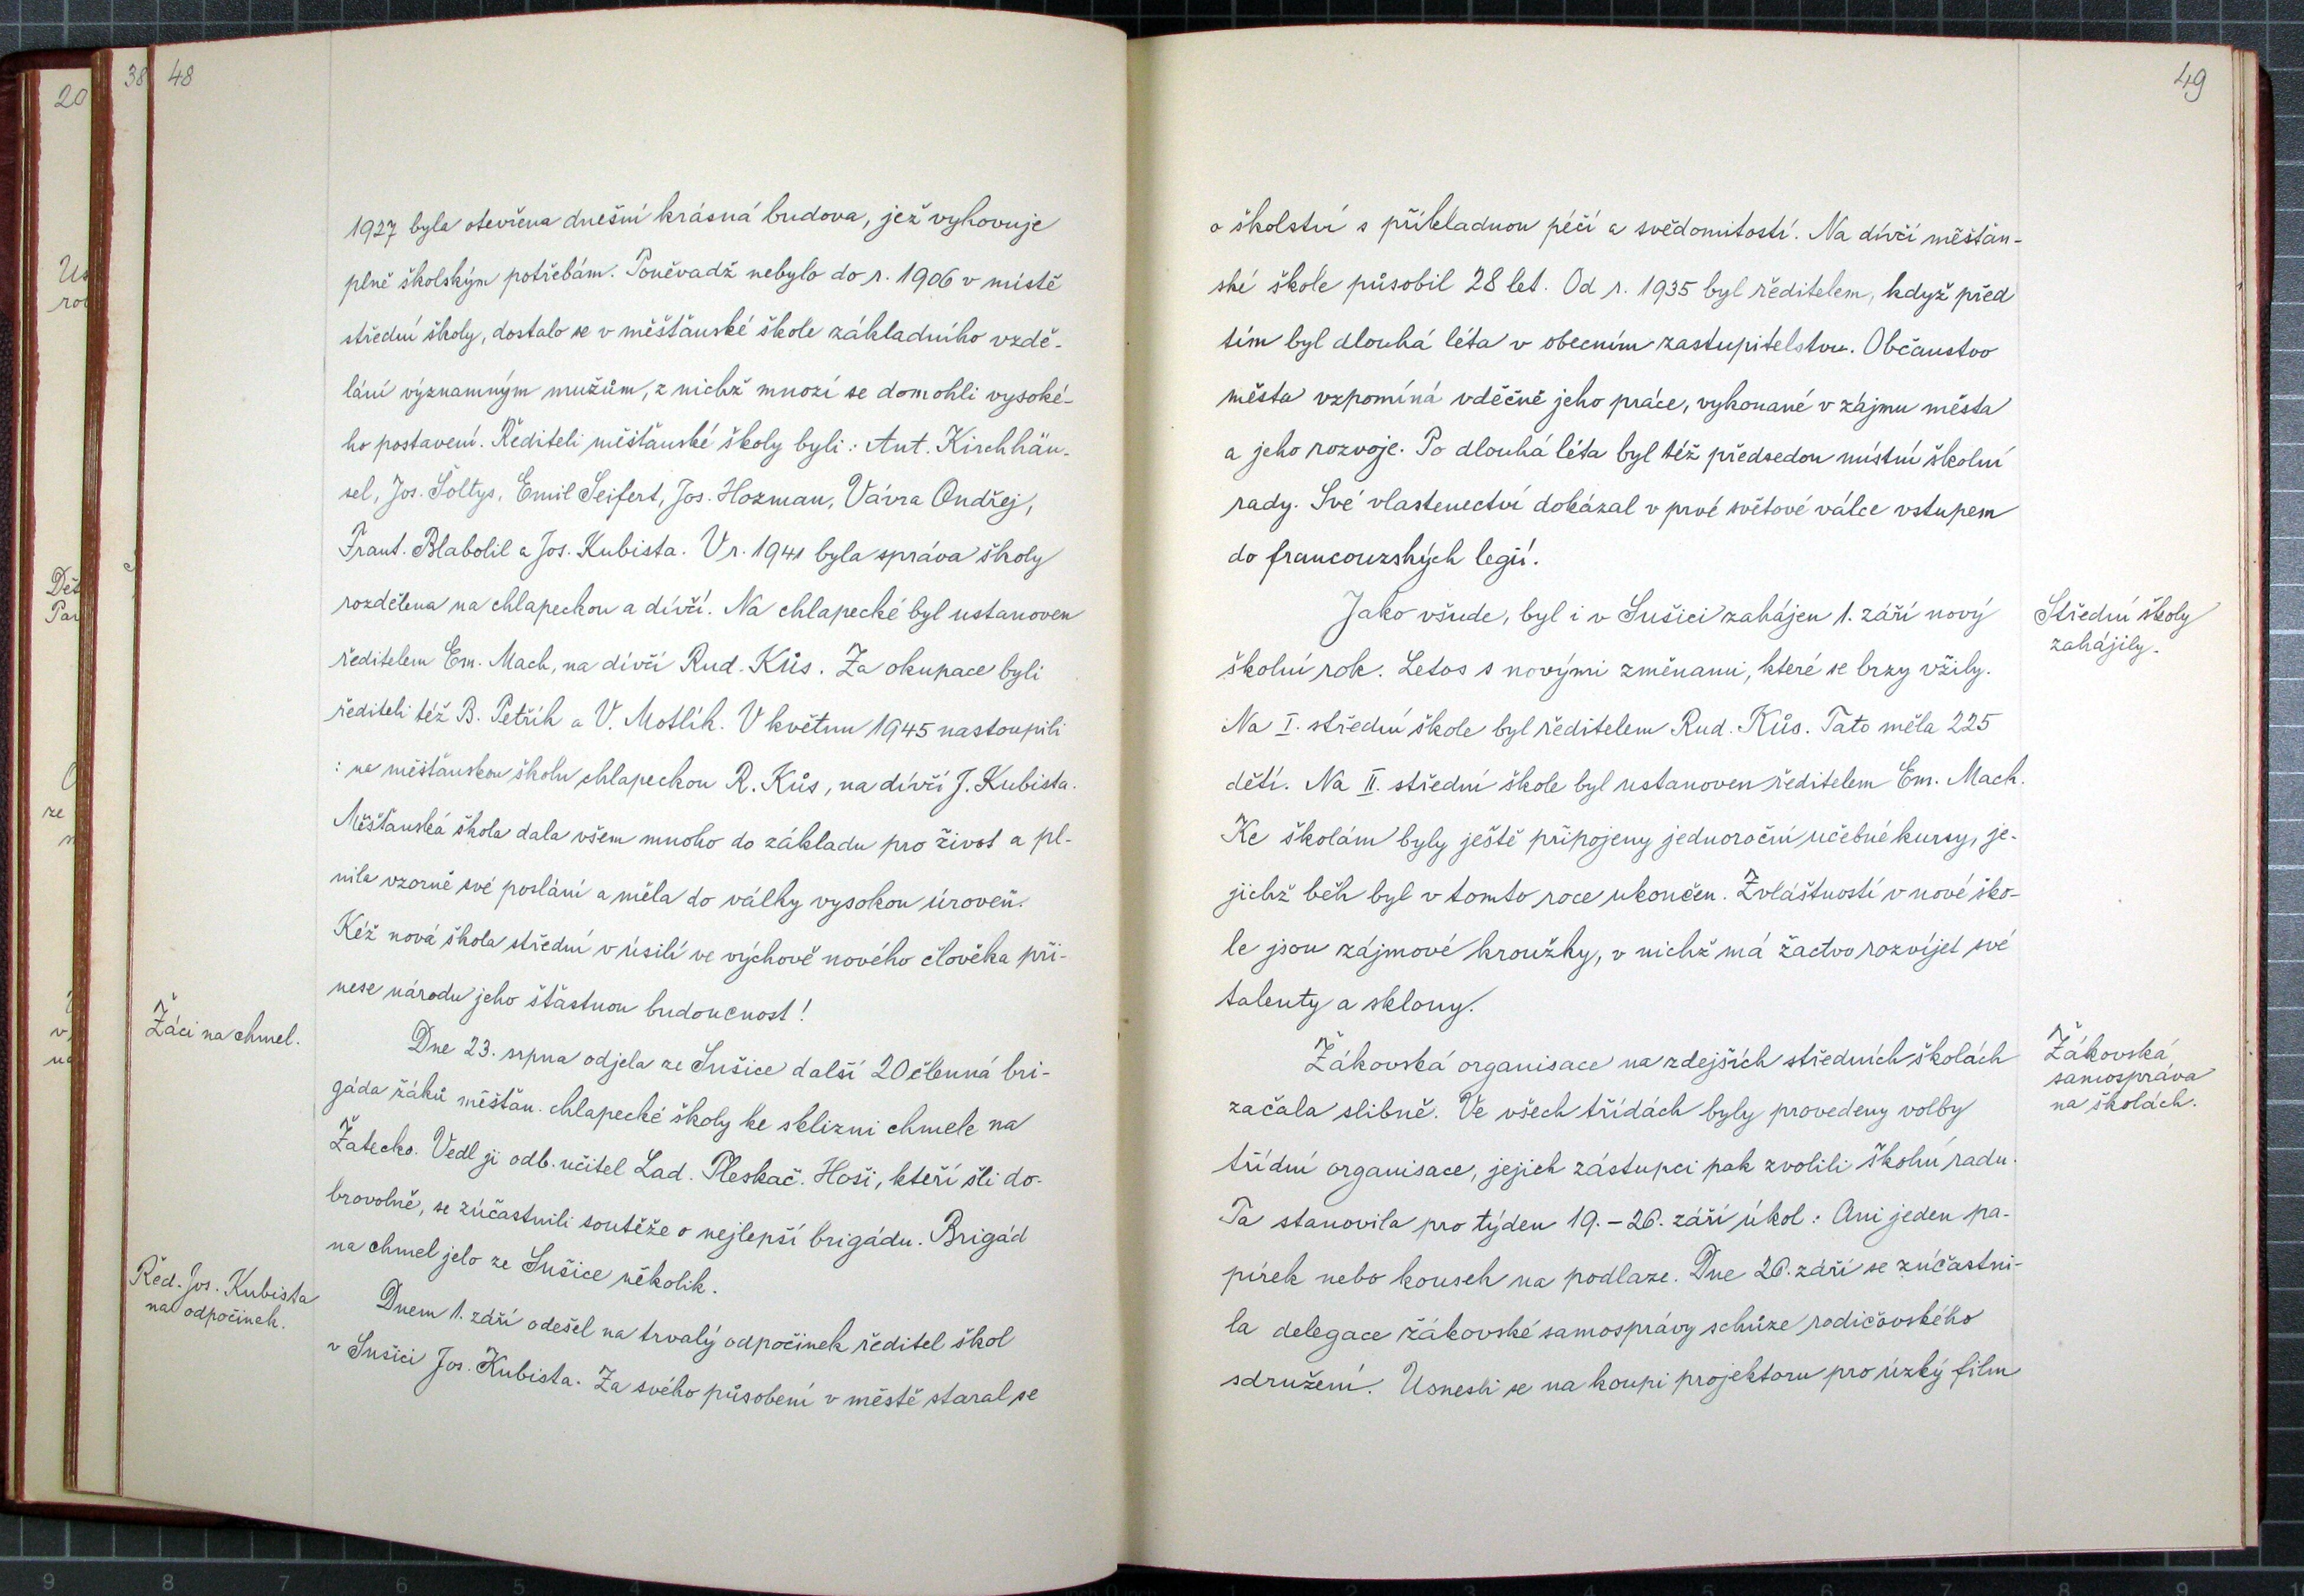 48
1927 byla otevřena dnešní krásná budova, jež vyhovuje
plně školským potřebám. Poněvadž nebylo do r. 1906 v místě
střední školy, dostalo se v měšťanské škole základního vzdě-
lání významným mužům, z nichž mnozí se domohli vysoké-
ho postavení. Řediteli měšťanské školy byli: Ant. Kirchhän-
sel, Jos. Šoltys, Emil Seifert, Jos. Hozman, Vávra Ondřej,
Frant. Blabolil a Jos. Kubista. V r. 1941 byla správa školy
rozdělena na chlapeckou a dívčí. Na chlapecké byl ustanoven
ředitelem Em. Mach, na dívčí Rud. Kůs. Za okupace byli
řediteli též B. Petřík a V. Motlík. V květnu 1945 nastoupili
: na měšťanskou školu chlapeckou R. Kůs, na dívčí J. Kubista.
Měšťanská škola dala všem mnoho do základu pro život a pl-
nila vzorně své poslání a měla do války vysokou úroveň.
Kéž nová škola střední v úsilí ve výchově nového člověka při-
nese národu jeho šťastnou budoucnost!
Žáci na chmel.
Dne 23. srpna odjela ze Sušice další 20členná bri-
gáda žáků měšťan. chlapecké školy ke sklizni chmele na
Žatecko. Vedl ji odb. učitel Lad. Pleskač. Hoši, kteří šli do-
brovolně, se zúčastnili soutěže o nejlepší brigádu. Brigád
na chmel jelo ze Sušice několik.
Řed. Jos. Kubista
na odpočinek.
Dnem 1. září odešel na trvalý odpočinek ředitel škol
v Sušici Jos. Kubista. Za svého působení v městě staral se
49
o školství s příkladnou péčí a svědomitostí. Na dívčí měšťan-
ské škole působil 28 let. Od r. 1935 byl ředitelem, když před
tím byl dlouhá léta v obecním zastupitelstvu. Občanstvo
města vzpomíná vděčně jeho práce, vykonané v zájmu města
a jeho rozvoje. Po dlouhá léta byl též předsedou místní školní
rady. Své vlastenectví dokázal v prvé světové válce vstupem
do francouzských legií.
Střední školy
zahájily.
Jako všude, byl i v Sušici zahájen 1. září nový
školní rok. Letos s novými změnami, které se brzy vžily.
Na I. střední škole byl ředitelem Rud. Kůs. Tato měla 225
dětí. Na II. střední škole byl ustanoven ředitelem Em. Mach.
Ke školám byly ještě připojeny jednoroční učebné kursy, je-
jichž běh byl v tomto roce ukončen. Zvláštností v nové ško-
le jsou zájmové kroužky, v nichž má žactvo rozvíjet své
talenty a sklony.
Žákovská
samospráva
na školách.
Žákovská organisace na zdejších středních školách
začala slibně. Ve všech třídách byly provedeny volby
třídní organisace, jejich zástupci pak zvolili školní radu.
Ta stanovila pro týden 19.-26. září úkol: Ani jeden pa-
pírek nebo kousek na podlaze. Dne 26. září se zúčastni-
la delegace žákovské samosprávy schůze rodičovského
sdružení. Usnesli se na koupi projektoru pro úzký film
20
38